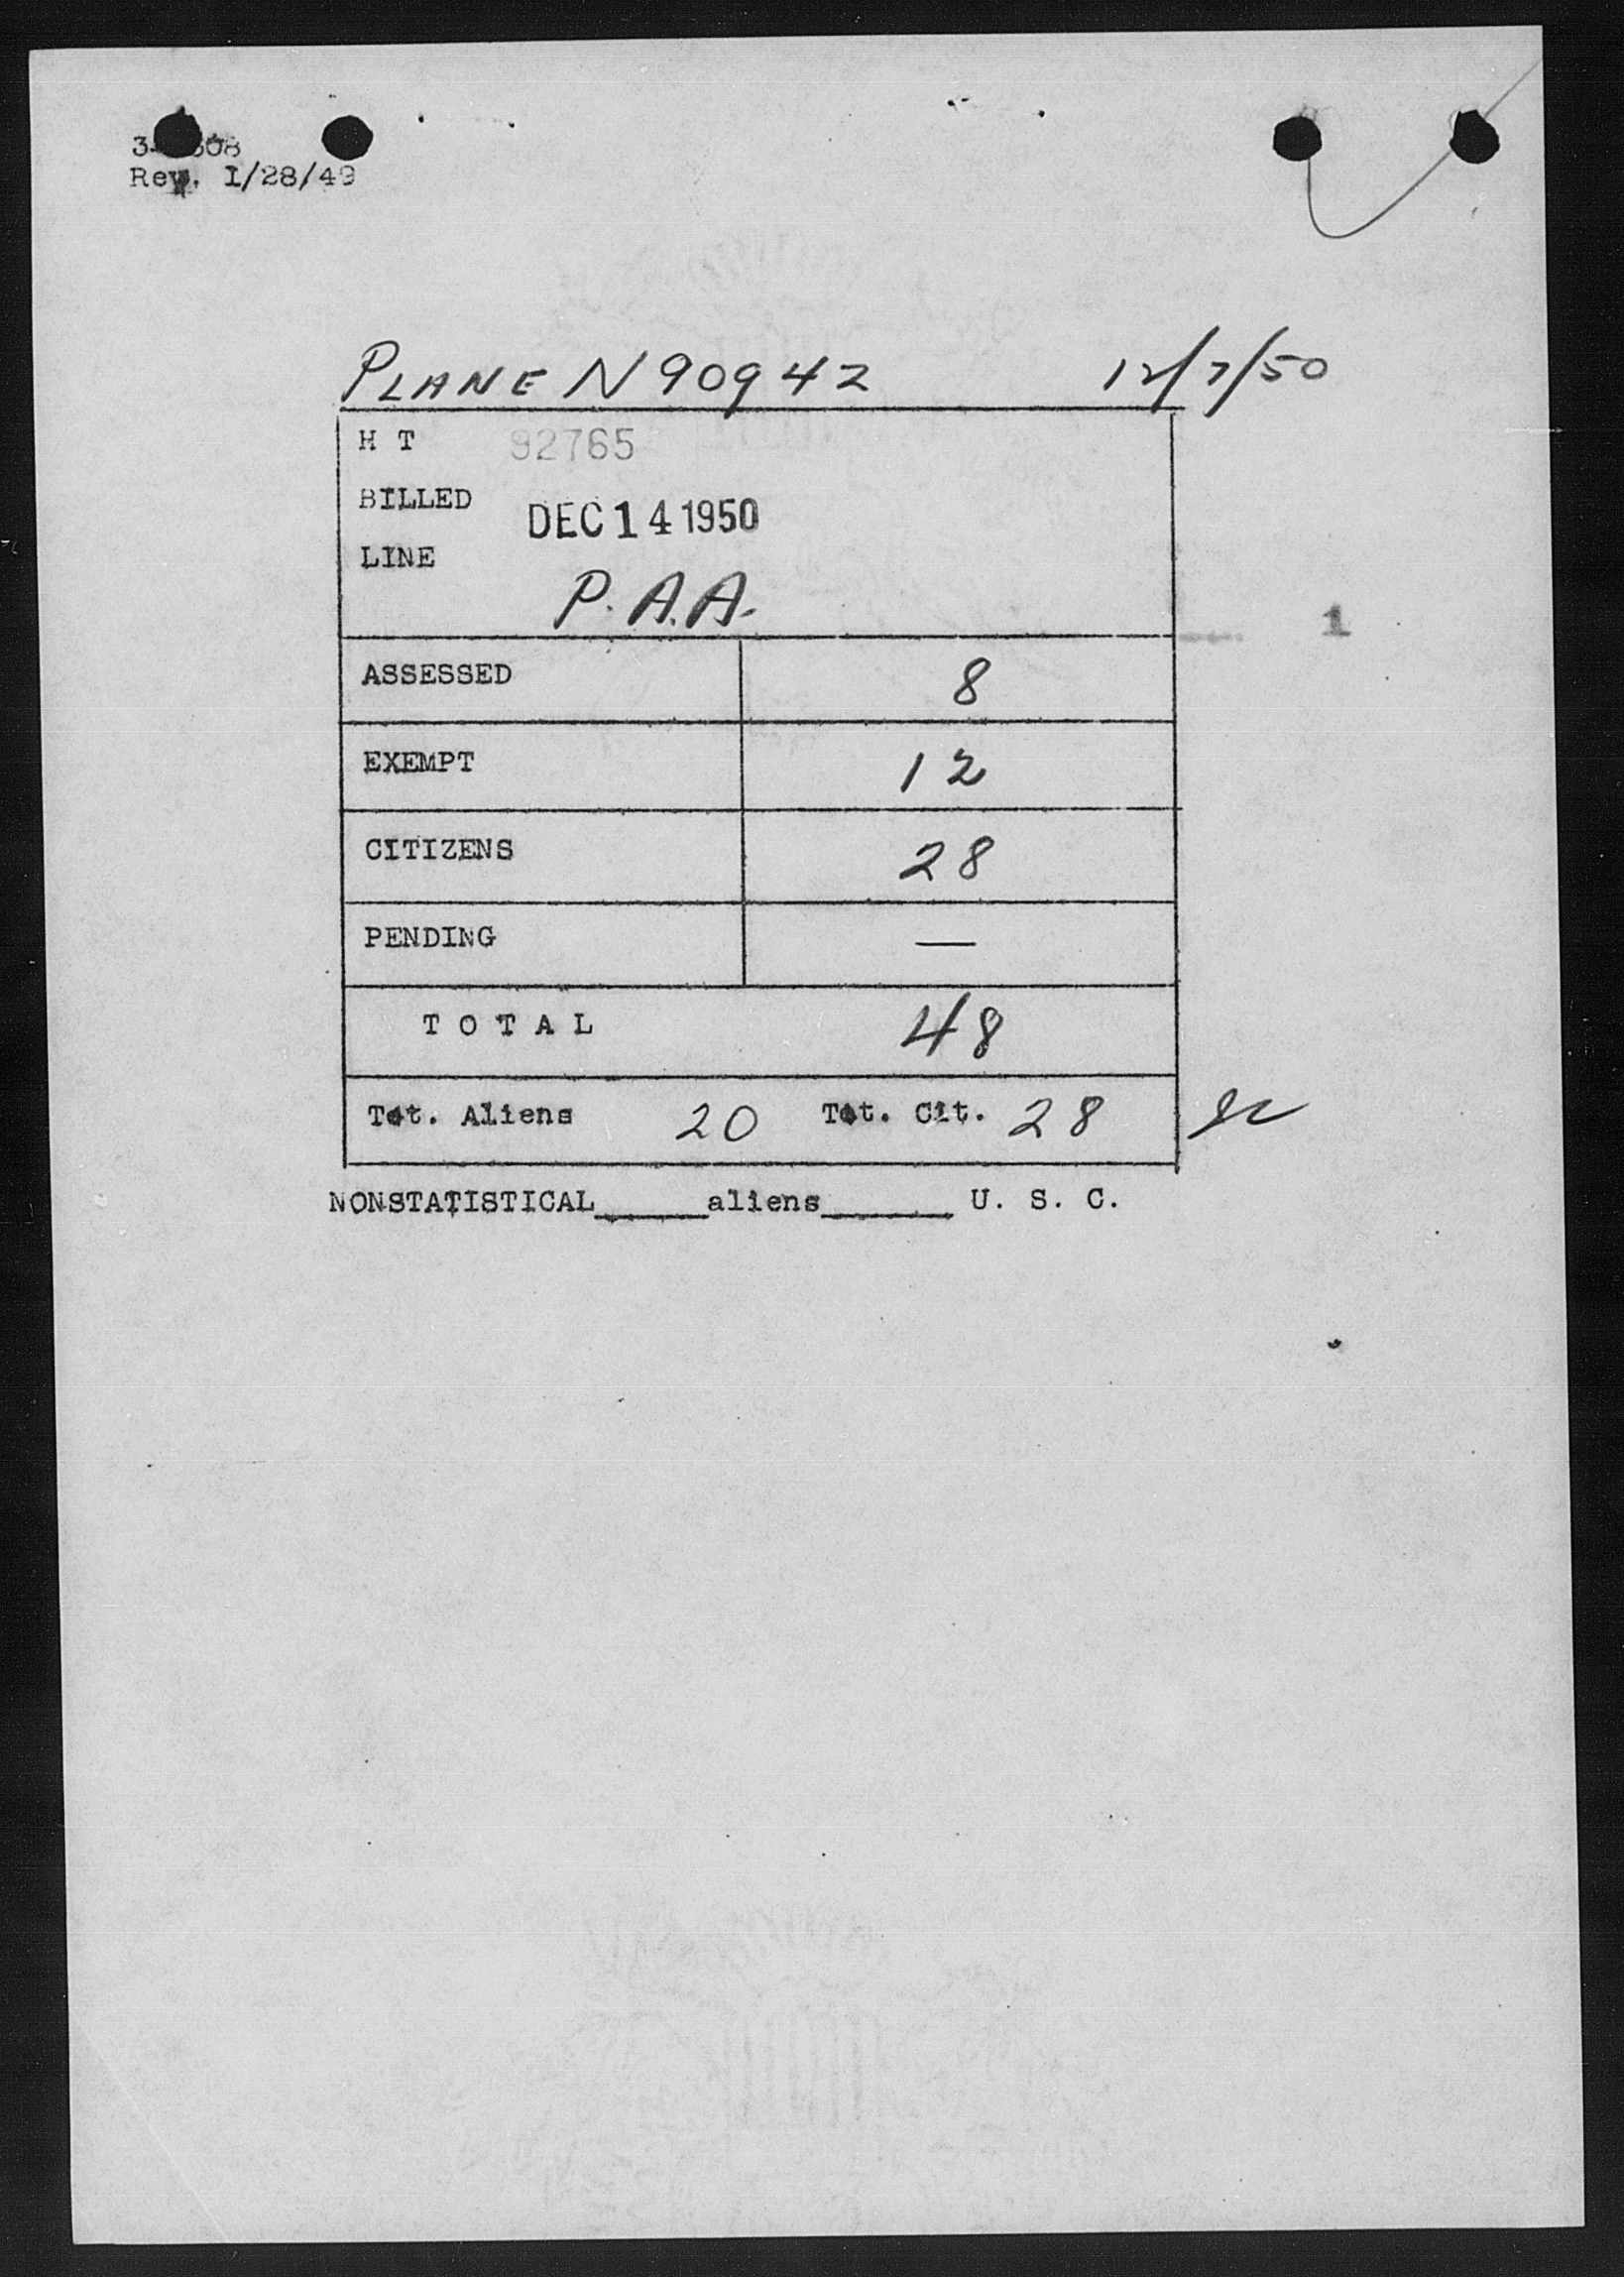 Rev. 1/28/49
PLANE N90942 12/7/50
H T 92765
BILLED DEC 14 1950
LINE P.A.A.
1
ASSESSED 8
EXEMPT 12
CITIZENS 28
PENDING —
T O T A L 48
Tot. Aliens 20 Tot. Cit. 28
NONSTATISTICAL______aliens_______ U. S. C.